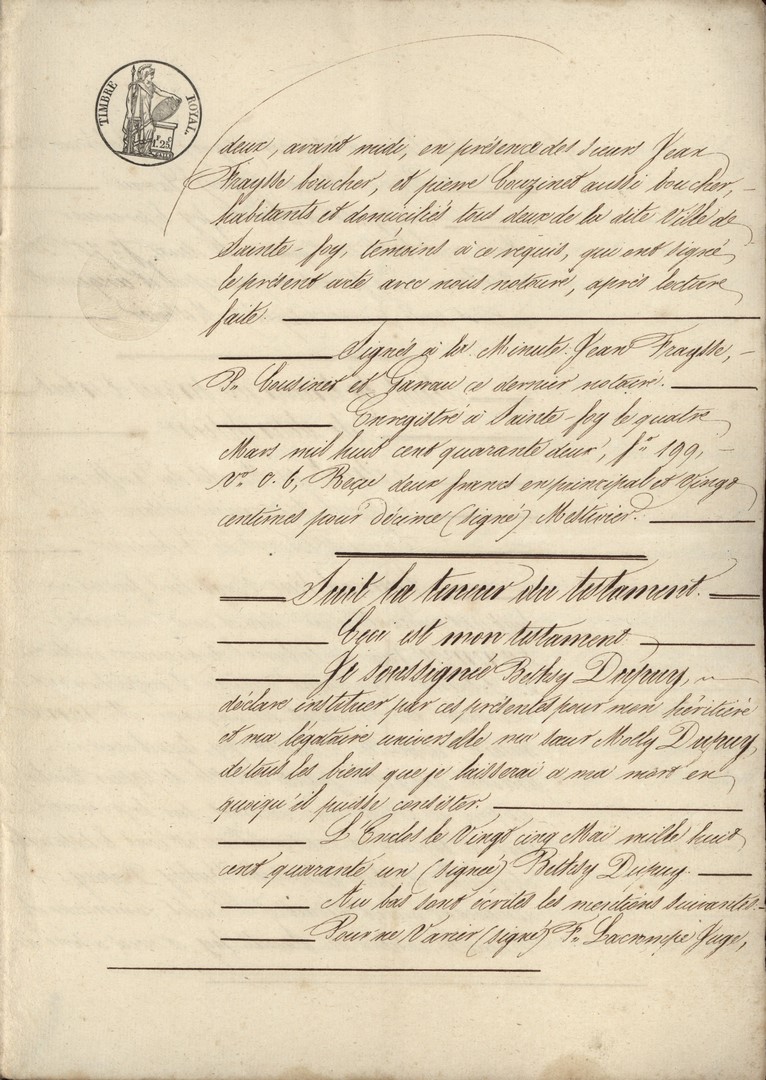 TIMBRE ROYAL.
1F. 25c
deux, avant midi, en présence des sieurs Jean
Fraysse boucher, et pierre Couzinet aussi boucher,
habitants et domiciliés tous deux de la dite Ville de
Sainte-foy, témoins à ce requis, qui ont signé
le présent acte avec nous notaire, après lecture
faite.
Signés à la Minute: Jean Fraysse,
P. Cousinet et Garrau ce dernier notaire.
Enregistré à Sainte foy le quatre
Mars mil huit cent quarante deux, fo 199,
Vo c. 6, Reçu deux francs en principal et Vingt
centimes pour Décime (signé) Mestivier.
Suit la teneur du testament.
Ceci est mon testament
Je soussignée Bethsy Dupuy,
déclare instituer par ces présentes pour mon héritière
et ma légataire universelle ma sœur Molly Dupuy,
de tous les biens que je laisserai à ma mort en
quoiqu'il puisse consister.
L'Enclos le Vingt cinq Mai mille huit
cent quarante un (signée) Bethsy Dupuy.
Au bas sont écrites les mentions suivantes.
Pour ne Varier (signé) F. Lacrompe Juge,